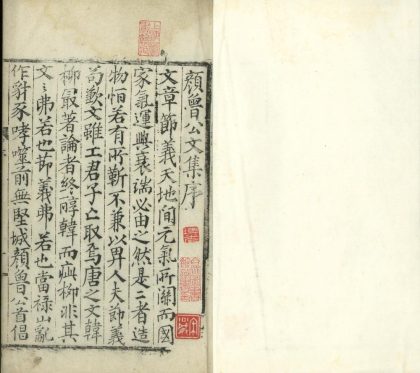 顏魯公文集序
文章節義天地間元氣所關而國
家氣運興衰端必由之然是二者造
物恒若有所靳不兼以畀人夫節義
苟歉文雖工君子亡取焉唐之文韓
柳最著論者終醇韓而疵柳非其
文之弗若也節義弗若也當祿山亂
作豺豕哮噬前無堅城顏魯公首倡